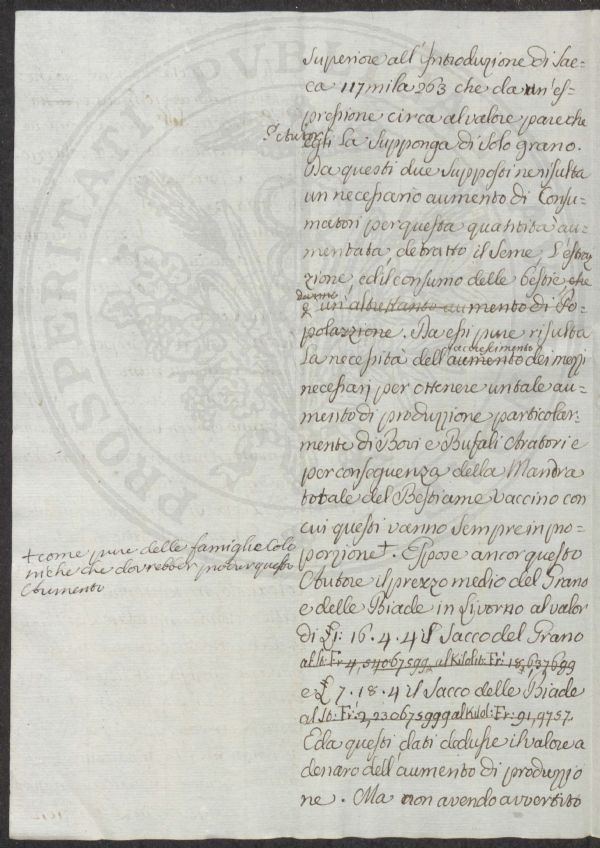 Superiore all'Introduzione di Sac=
ca 117 mila 263 che da un'es=
pressione circa al valore pare che
egli la supponga di solo grano.
Da questi due Supposti ne risulta
un necessario aumento di Consu=
matori per questa quantità au=
mentata, detratto il seme, l'estra
zione, ed il consumo delle bestie, che
un'altrettanto aumento di Po=
polazione. Da essi pure risulta
la necessità dell'aumento dei mezzi
accrescimento
necessarj per ottenere un tale au=
mento di produzione particolar=
mente di Bovi e Bufali Aratori e
per conseguenza della Mandra
totale del Bestiame vaccino con
cui questi vanno sempre in pro=
porzione+. Espose ancor questo
+ come pure delle famiglie Colo
niche che dovrebber produr questo
Aumento
Autore il prezzo medio del Grano
e delle Biade in Livorno al valor
di £i: 16.4.4 il Sacco del Grano
e £ 7.18.4 il Sacco delle Biade
al St: Fr: 2,23067599 al Kilol: Fr: 91,9757.
E da questi dati dedusse il valore a
denaro dell'aumento di produzzio
ne. Ma non avendo avvertito
PROSPERITATI PVBLICAE